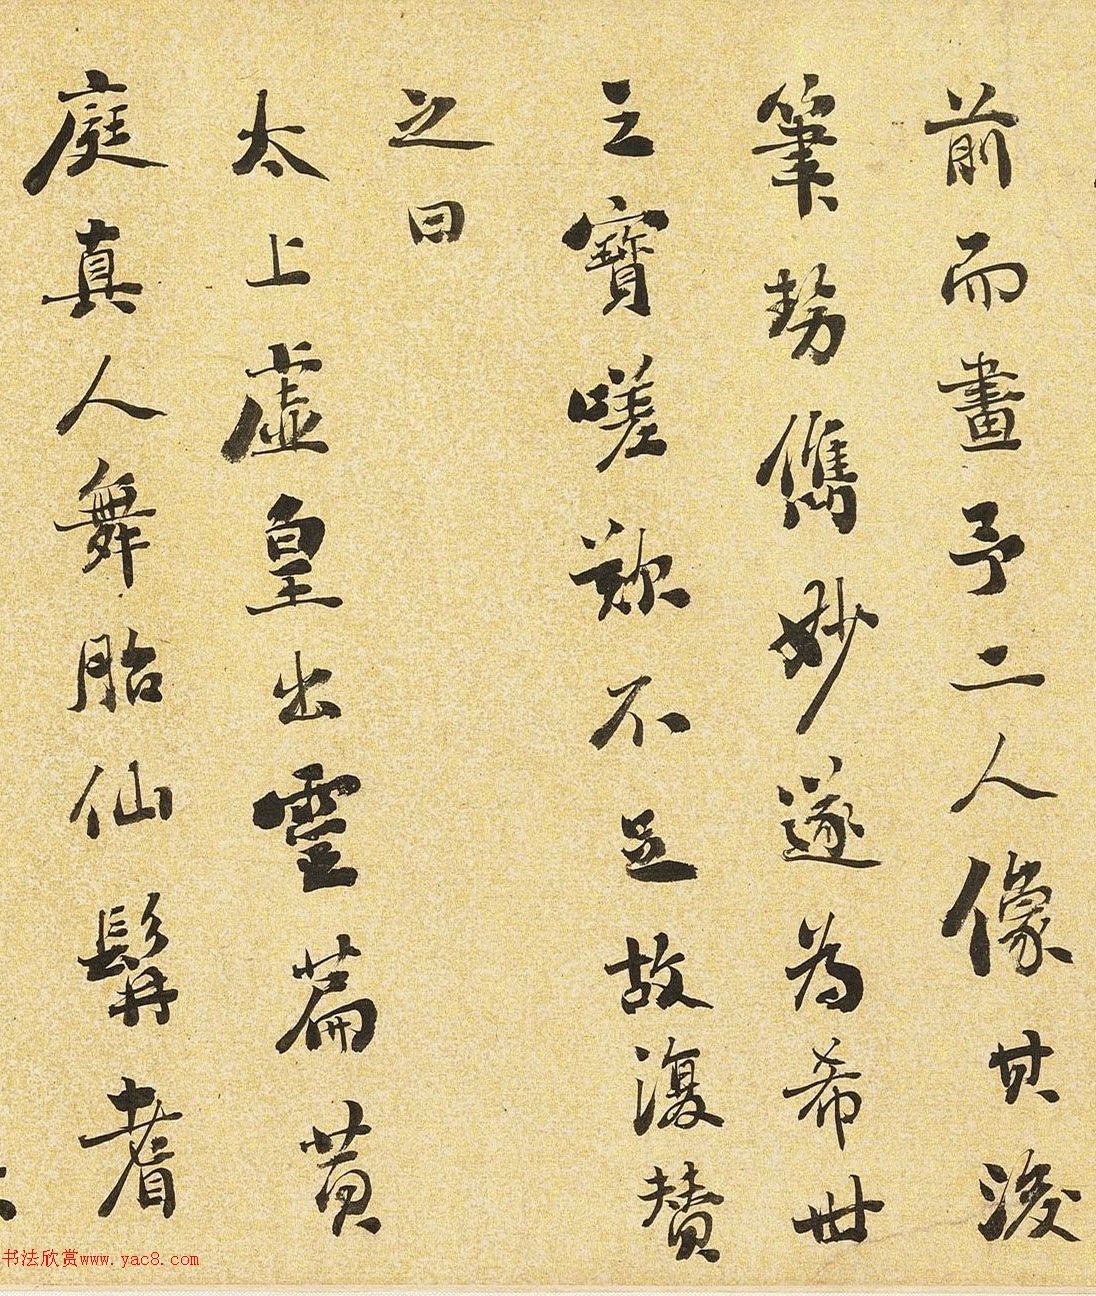 前而畫予二人像其後
筆勢儁妙遂為希世
之寶嗟歎不足故復贊
之曰
太上虛皇出靈篇黃
庭真人舞胎仙髯耆
书法欣赏www.yac8.com